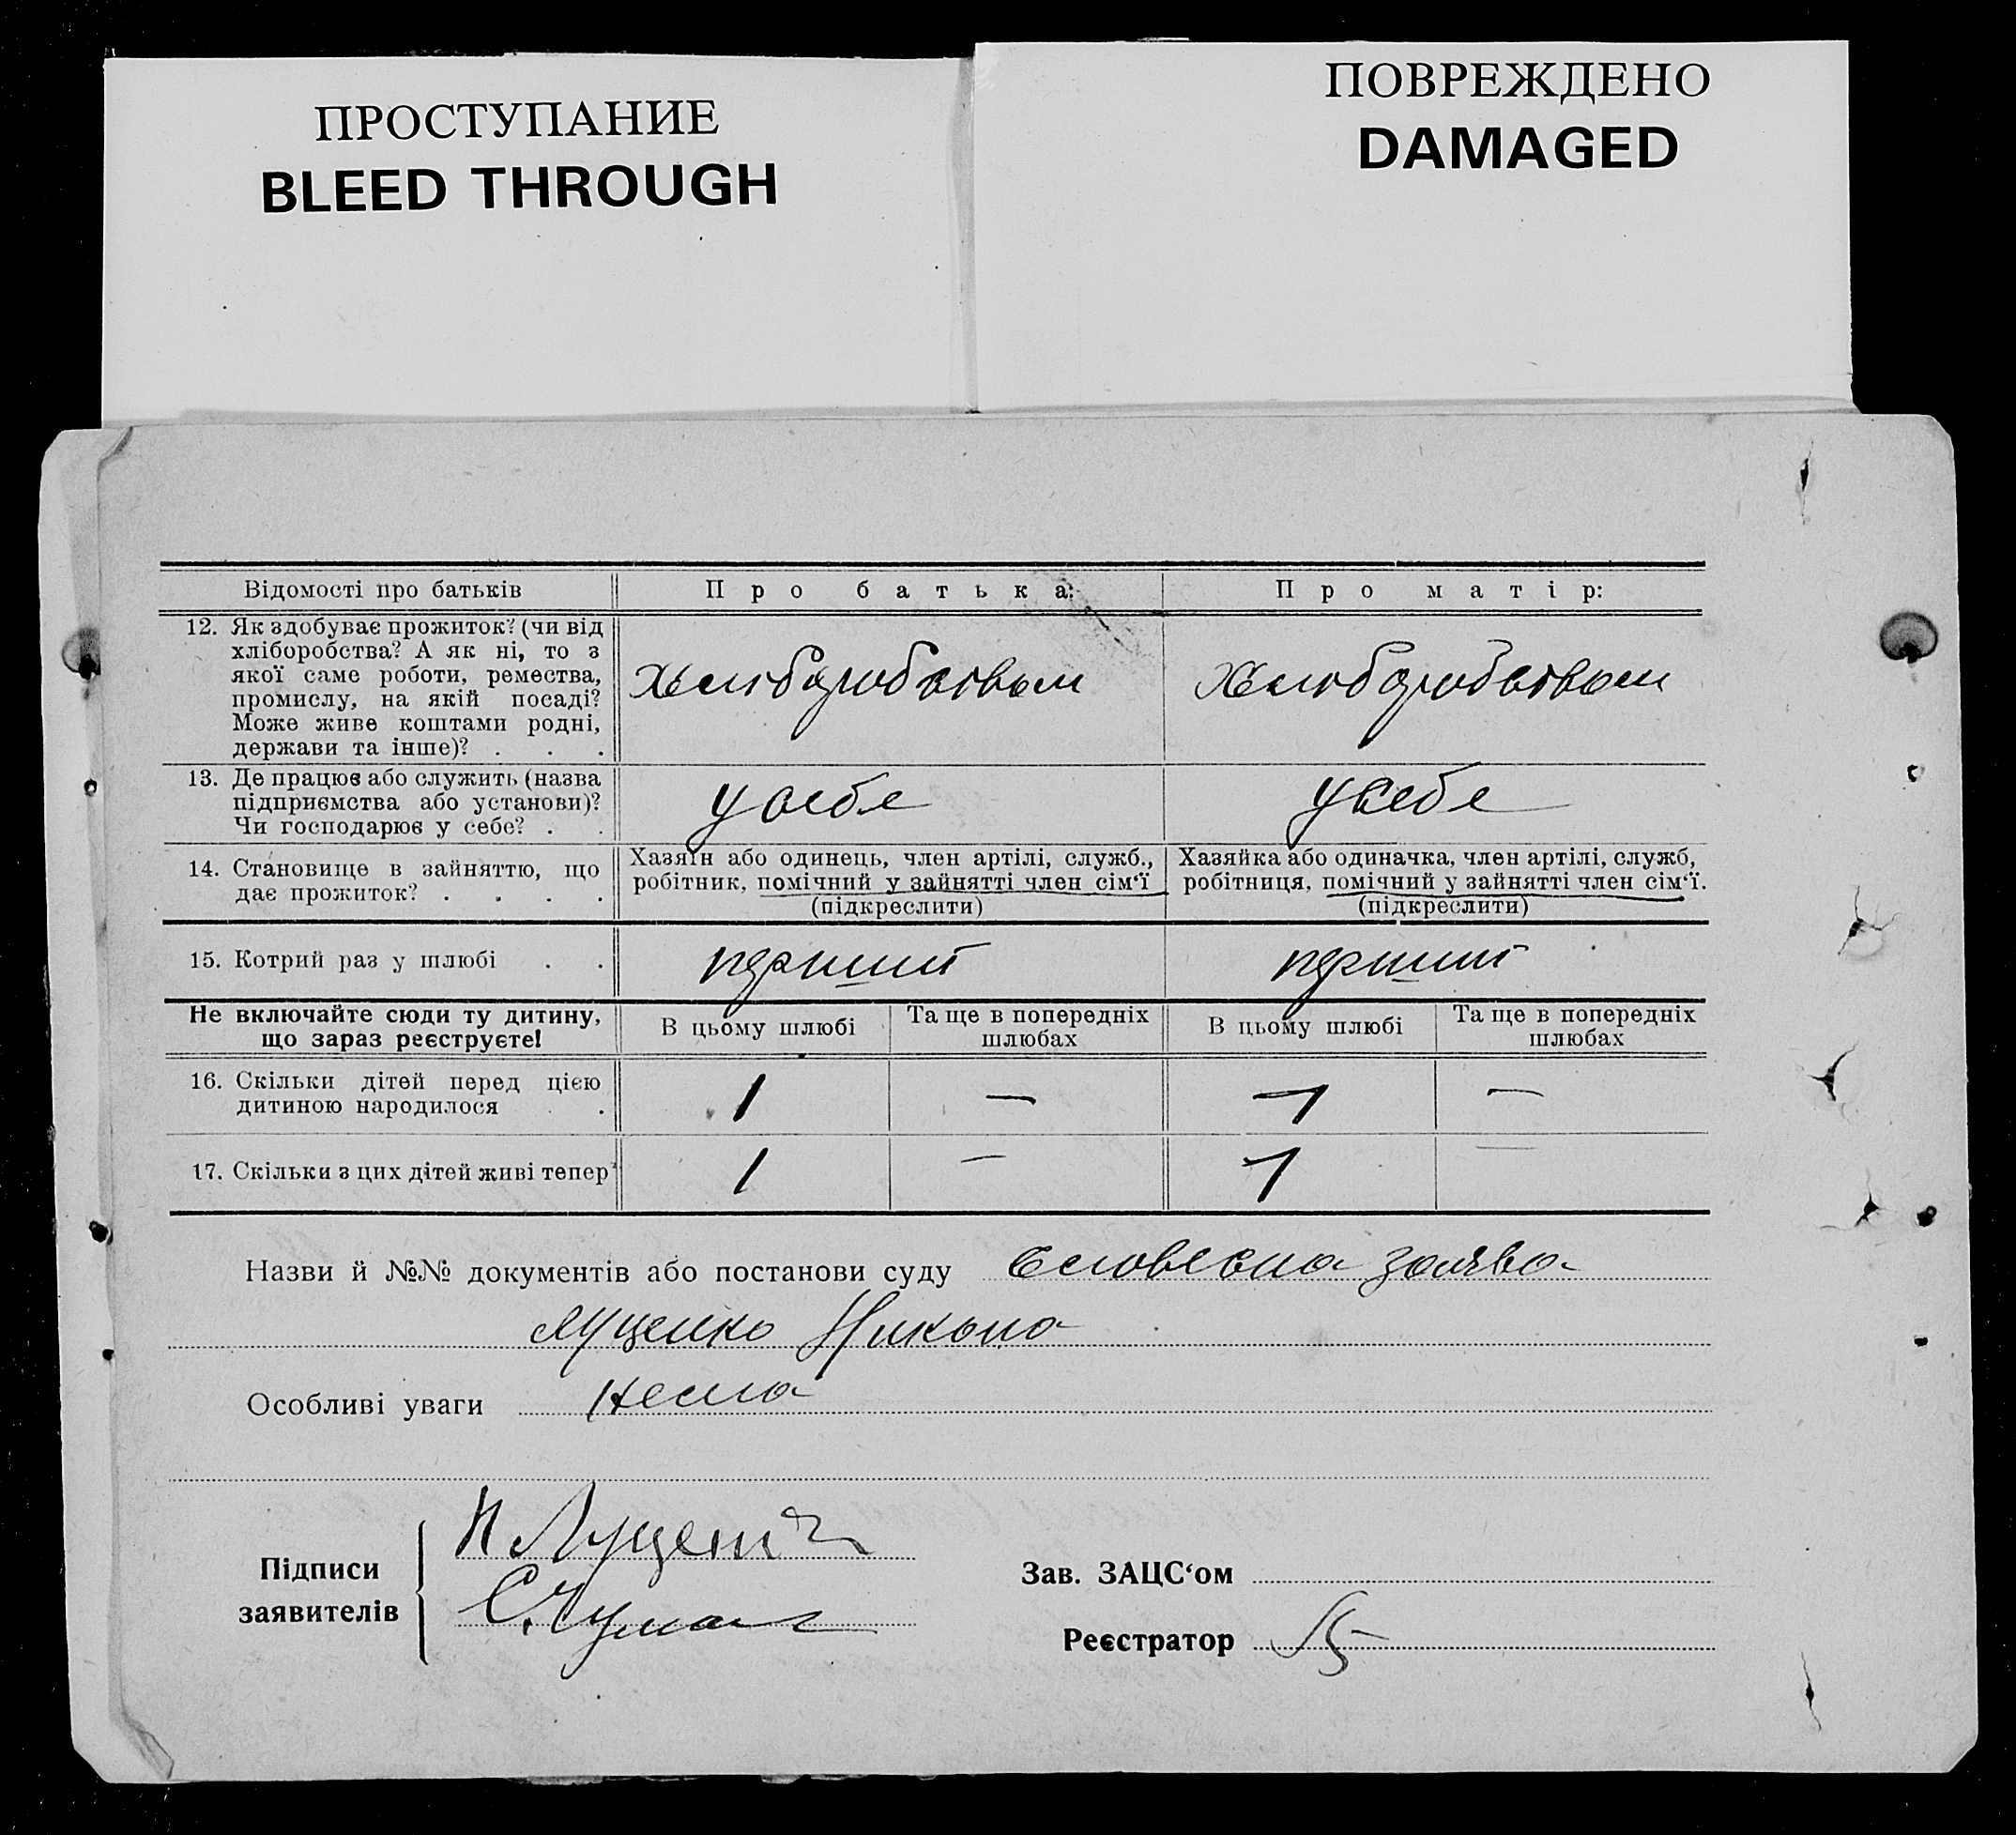 ПРОСТУПАНИЕ
BLEED THROUGH
ПОВРЕЖДЕНО
DAMAGED
Відомості про батьків
Про батька:
Про матір:
12. Як здобуває прожиток? (чи від
хліборобства? А як ні, то з
якої саме роботи, ремества,
промислу, на якій посаді?
Може живе коштами родні,
держави та інше)? . . .
Хлиборобством
Хлиборобством
13. Де працює або служить (назва
підприємства або установи)?
Чи господарює у себе? . .
у себе
у себе
14. Становище в зайняттю, що
дає прожиток? . . . .
Хазяїн або одинець, член артілі, служб.,
робітник, помічний у зайнятті член сім‘ї
(підкреслити)
Хазяйка або одиначка, член артілі, служб,
робітниця, помічний у зайнятті член сім‘ї.
(підкреслити)
15. Котрий раз у шлюбі . .
перший
перший
Не включайте сюди ту дитину,
що зараз реєструєте!
В цьому шлюбі
Та ще в попередніх
шлюбах
В цьому шлюбі
Та ще в попередніх
шлюбах
16. Скільки дітей перед цією
дитиною народилося . .
1 — 1 —
17. Скільки з цих дітей живі тепер
1 — 1 —
Назви й №№ документів або постанови суду Словесна заява
Луценко Никона
Особливі уваги нема
Підписи
заявителів
Н Луценко
С. Чумак
Зав. ЗАЦС‘ом
Реєстратор